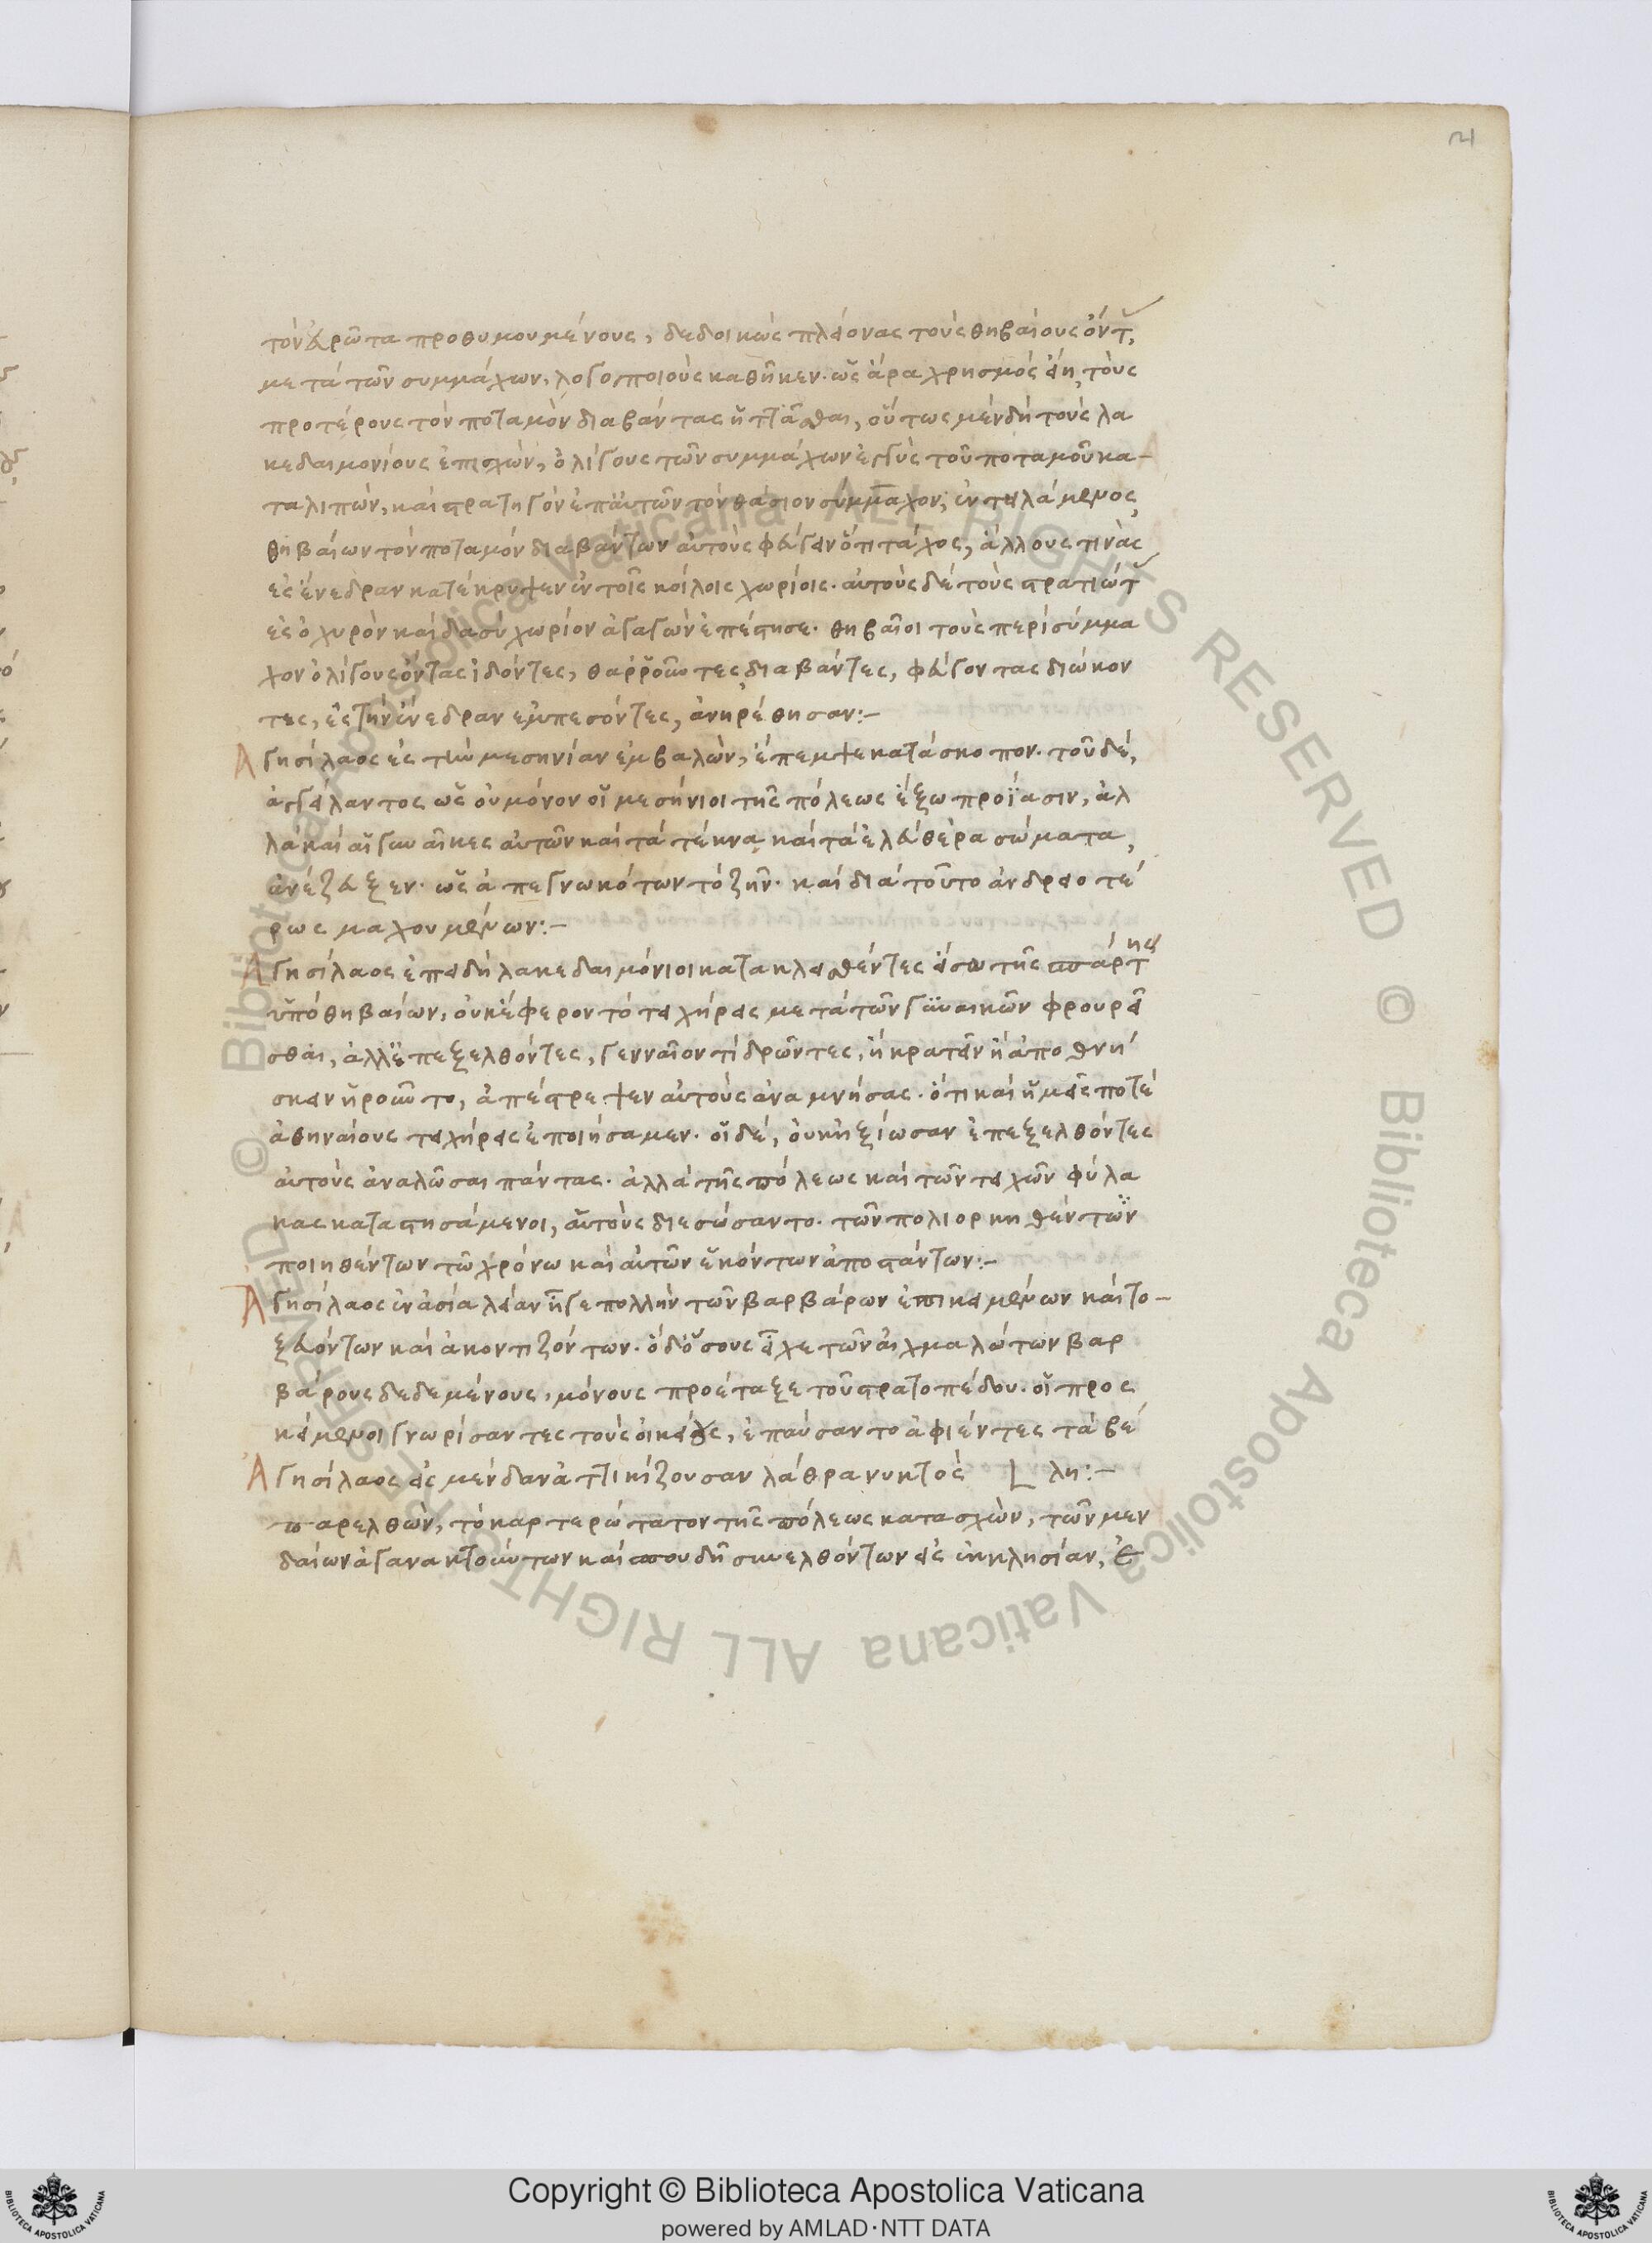 21
τὸν εὐρῶτα προθυμουμένους, δεδοικὼς πλείονας τοὺς θηβαίους ὄντ
μετὰ τῶν συμμάχων, λογοποιοὺς καθῆκεν. ὡς ἄρα χρησμὸς εἴη τοὺς
προτέρους τὸν ποταμὸν διαβάντας ἡττᾶσθαι, οὕτως μὲν δὴ τοὺς λα
κεδαιμονίους ἐπισχὼν, ὀλίγους τῶν συμμάχων ἐγγὺς τοῦ ποταμοῦ κα-
ταλιπὼν, καὶ στρατηγὸν ἐπ' αὐτῶν τὸν θάσιον σύμμαχον, ἐντειλάμενος,
θηβαίων τὸν ποταμὸν διαβάντων αὐτοὺς φεύγειν ὅτι τάχος, ἄλλους τινὰς
ἐς ἐνέδραν κατέκρυψεν ἐν τοῖς κοίλοις χωρίοις. αὐτοὺς δὲ τοὺς στρατιώτ
ἐς ὀχυρὸν καὶ δασὺ χωρίον ἀγαγὼν ἐπέστησε. θηβαῖοι τοὺς περὶ σύμμα
χον ὀλίγους ὄντας ἰδόντες, θαρροῦντες διαβάντες, φεύγοντας διώκον
τες, ἐς τὴν ἐνέδραν ἐμπεσόντες, ἀνῃρέθησαν:-
Ἀγησίλαος ἐς τὴν μεσηνίαν ἐμβαλὼν, ἔπεμψε κατάσκοπον. τοῦ δὲ,
ἀγγείλαντος ὡς οὐ μόνον οἱ μεσήνιοι τῆς πόλεως ἔξω προΐασιν, ἀλ
λὰ καὶ αἱ γυναῖκες αὐτῶν καὶ τὰ τέκνα καὶ τὰ ἐλεύθερα σώματα,
ἀνέζευξεν. ὡς ἀπεγνωκότων τὸ ζῆν. καὶ διὰ τοῦτο ἀνδρειοτέ
ρως μαχουμένων:-
Ἀγησίλαος ἐπειδὴ λακεδαιμόνιοι κατακλεισθέντες εἴσω τῆς σπάρτης
ὑπὸ θηβαίων, οὐκ ἔφερον τὸ τειχήρεις μετὰ τῶν γυναικῶν φρουρεῖ
σθαι, ἀλλ' ἐπεξελθόντες, γενναῖον τὶ δρῶντες, ἢ κρατεῖν ἢ ἀποθνή
σκειν ᾑροῦντο, ἀπέστρεψεν αὐτοὺς ἀναμνήσας. ὅτι καὶ ἡμεῖς ποτὲ
ἀθηναίους τειχήρεις ἐποιήσαμεν. οἱ δὲ, οὐκ ἠξίωσαν ἐπεξελθόντες
αὐτοὺς ἀναλῶσαι πάντας. ἀλλὰ τῆς πόλεως καὶ τῶν τειχῶν φύλα
κας καταστησάμενοι, αὑτοὺς διεσώσαντο. τῶν πολιορκηθέντων
ποιηθέντων τῶ χρόνω καὶ αὐτῶν ἑκόντων ἀποστάντων:-
Ἀγησίλαος ἐν ἀσία λείαν ἦγε πολλὴν τῶν βαρβάρων ἐπικειμένων καὶ το-
ξευόντων καὶ ἀκοντιζόντων. ὁ δ' ὅσους εἶχε τῶν αἰχμαλώτων βαρ
βάρους δεδεμένους, μόνους προέταξε τοῦ στρατοπέδου. οἱ προς
κείμενοι γνωρίσαντες τοὺς οἰκείους, ἐπαύσαντο ἀφιέντες τὰ βέ
Ἀγησίλαος εἰς μένδαν ἀττικίζουσαν λάθρα νυκτὸς λη:-
παρελθὼν, τὸ καρτερώτατον τῆς πόλεως κατασχὼν, τῶν μεν
δαίων ἀγανακτούντων καὶ σπουδῆ συνελθόντων εἰς ἐκκλησίαν,